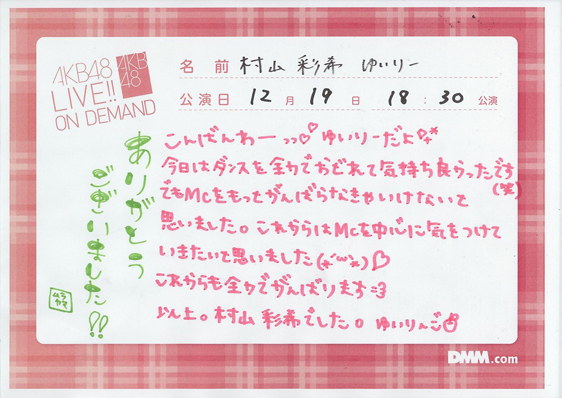 AKB48
LIVE!!
ON DEMAND
AKB
48
名前 村山 彩希 ゆいりー
公演日 12月19日 18:30公演
こんばんわーっっ♡ゆいりーだよ
今日はダンスを全力でおどれて気持ち良かったです(笑)
でもMcをもっとがんばらなきゃいけないと
思いました。これからはMcを中心に気をつけて
いきたいと思いました(*'ω'*)♡
これからも全力でがんばります=3
以上。村山 彩希でした。ゆいりんご
ありがとう
ございました!!
ムラヤマ
DMM.com